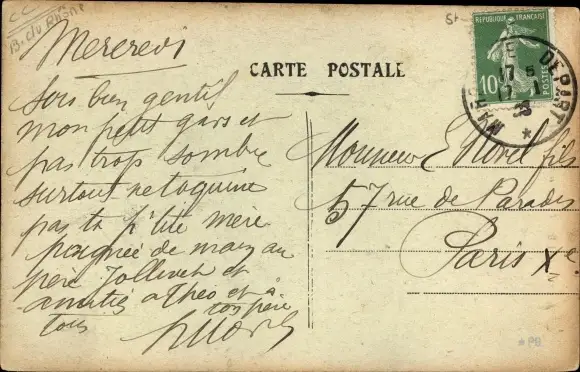 CC
B. du Rhône
Mercredi
CARTE POSTALE
Sois bien gentil
mon petit gars et
pas trop sombre
surtout ne taquine
pas ta p'tite mère
poignée de main au
père Jollivet et
amitiés a Théo et à
tous ton père
Monsieur E fils
57 rue de Paradis
Paris Xe
REPUBLIQUE FRANÇAISE
10
POSTES
DEPART
*